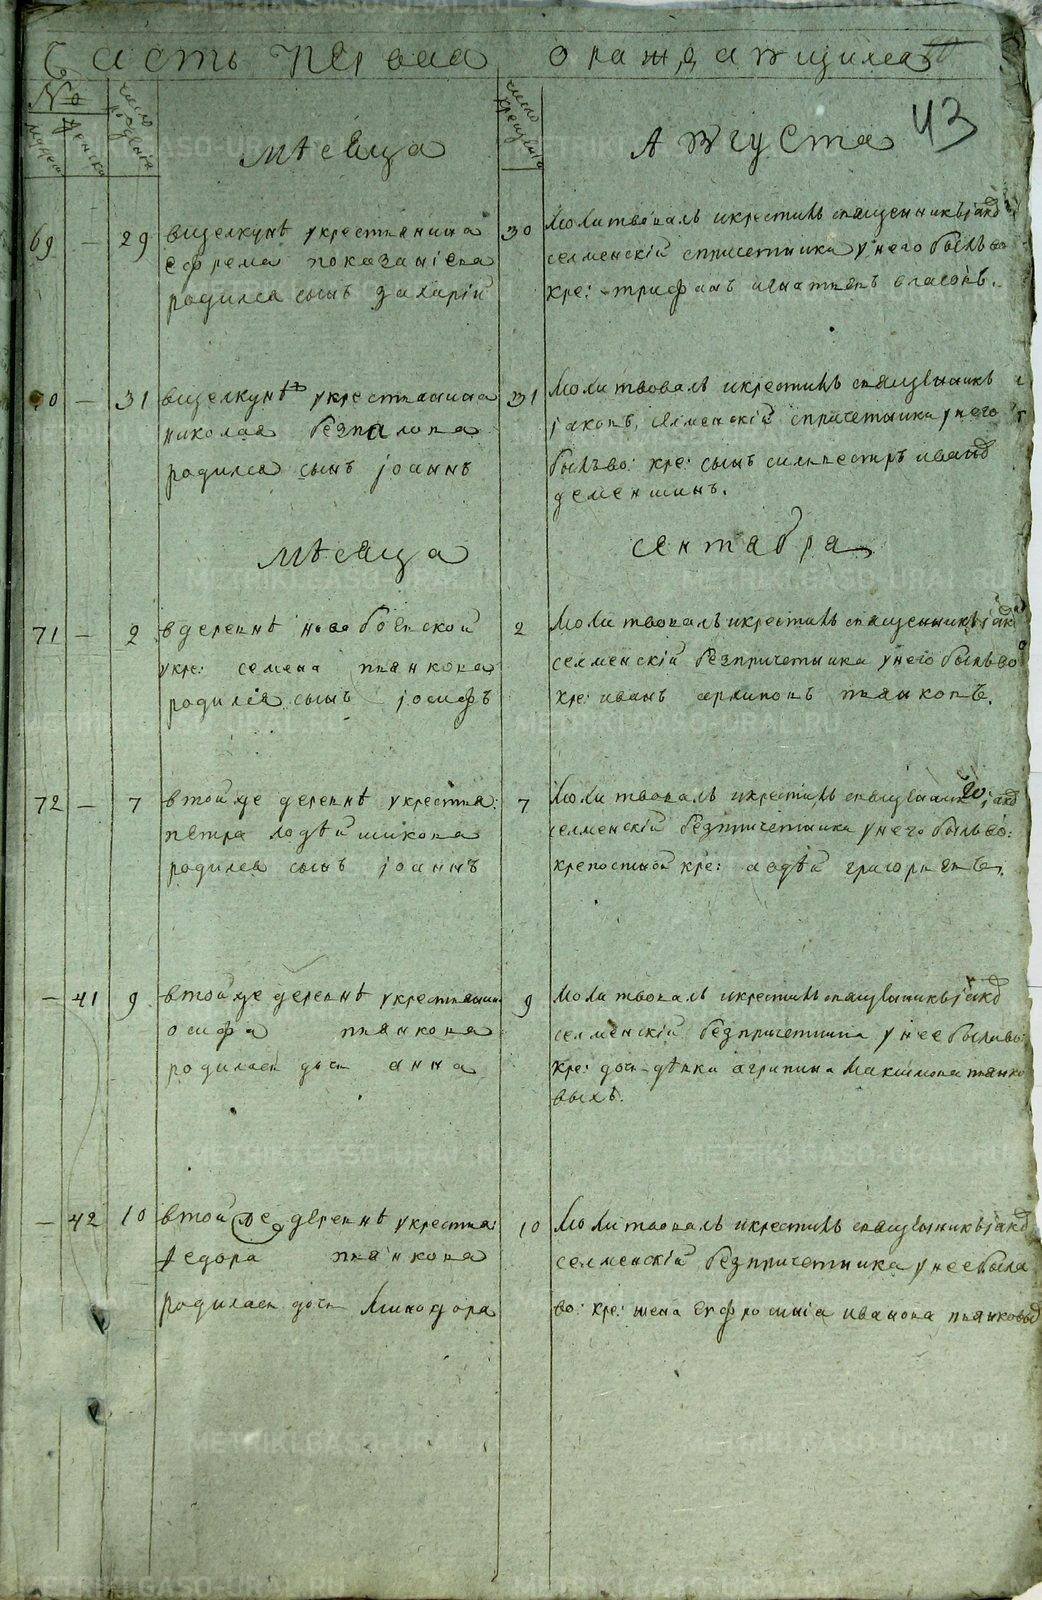 Часть первая о раждающихся
43
№
мужеска
женска
число рожденія
число крещенія
мѣсяца
Августа
69 — 29
вщелкунѣ укрестьянина
ефрема показаніева
родился сынъ захарій
30
молитвовалъ икрестилъ священникъ іаковъ
селменскій спричетника унего былъ во
кре: трифанъ игнатьевъ власовъ.
70 — 31
вщелкунѣ укрестьянина
николая безпалова
родился сынъ іоаннъ
31
молитвовалъ икрестилъ священникъ
іаковъ селменскій спричетника унего
былъ во: кре: сынъ сильвестръ иванов
деменшинъ.
мѣсяца
сентября
71 — 2
вдеревнѣ новобоевской
укре: семена пьянкова
родился сынъ іосифъ
2
молитвовалъ икрестилъ священникъ іаков
селменскій безпричетника унего былъ во
кре: иванъ архиповъ пьянковъ.
72 — 7
втойже деревнѣ укрестья:
петра лодѣйщикова
родился сынъ іоаннъ
7
молитвовалъ икрестилъ священникъ іаков
селменскій безпричетника унего былъ во:
крепостной кре: авдѣй григорьевъ.
— 41 9
втойже деревнѣ укрестьянина
осифа пьянкова
родилась дочь анна
9
молитвовалъ икрестилъ священникъ іаков
селменскій безпричетника унее была во
кре: дочь дѣвка агрипина максимова пьянко
выхъ.
— 42 10
втойже деревнѣ укрестья:
федора пьянкова
родилась дочь Минодора
10
молитвовалъ икрестилъ священникъ іаков
селменскій безпричетника унее была
во: кре: жена евфросинія иванова пьянковых
METRIKI.GASO-URAL.RU